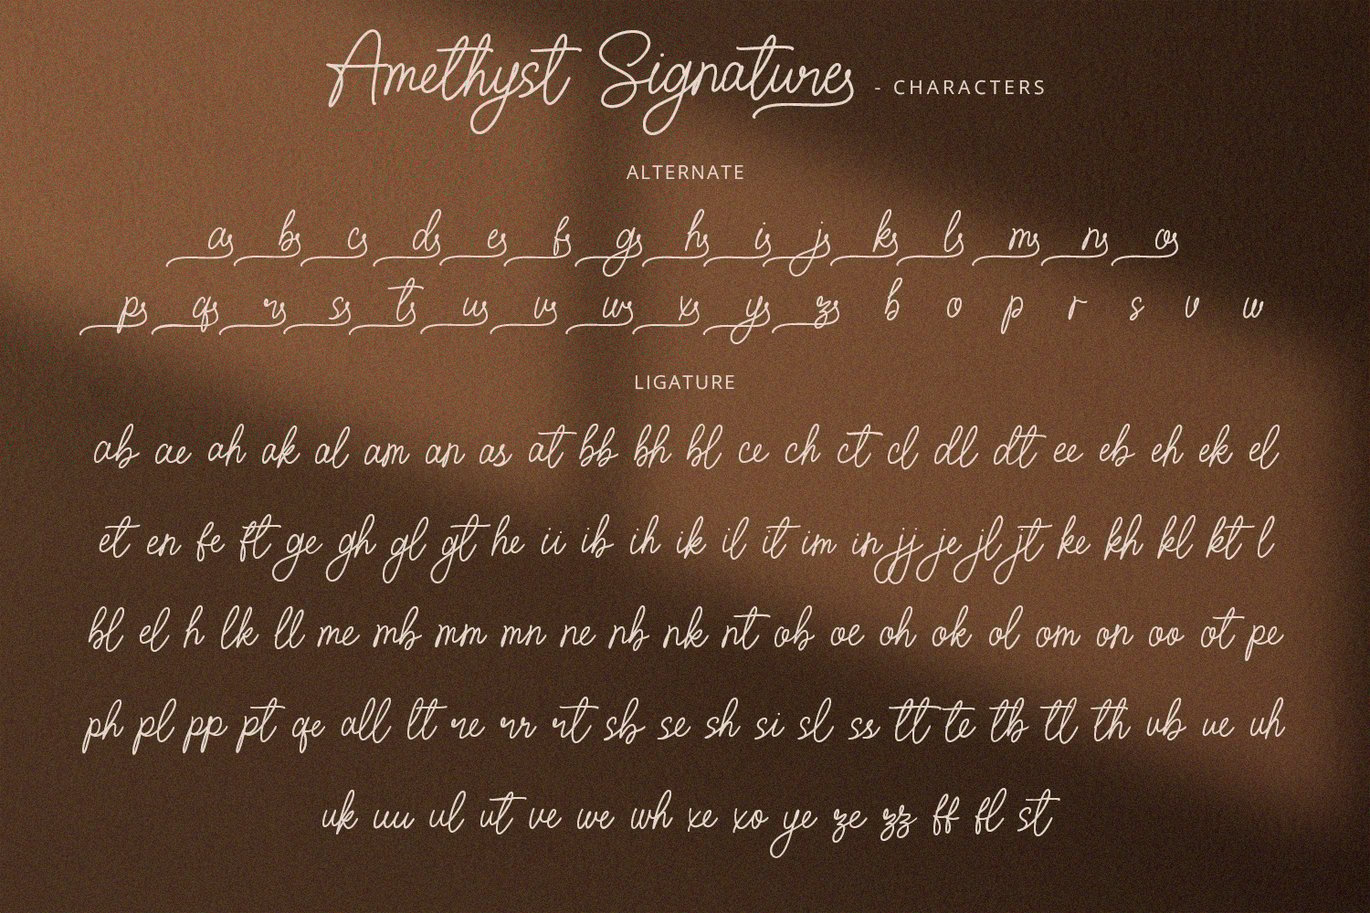 Amethyst Signatures - CHARACTERS
ALTERNATE
as bs cs ds es fs gs hs is js ks ls ms ns os
ps qs rs ss ts us vs ws xs ys zs b o p r s v w
LIGATURE
ab ae ah ak al am an as at bb bh bl ce ch ct cl dl dt ee eb eh ek el
et en fe ft ge gh gl gt he ii ib ih ik il it im in jj je jl jt ke kh kl kt l
bl el h lk ll me mb mm mn ne nb nk nt ob oe oh ok ol om on oo ot pe
ph pl pp pt qe all lt re rr rt sb se sh si sl ss tt te tb tl th ub ue uh
uk uu ul ut ve we wh xe xo ye ze zz ff fl st